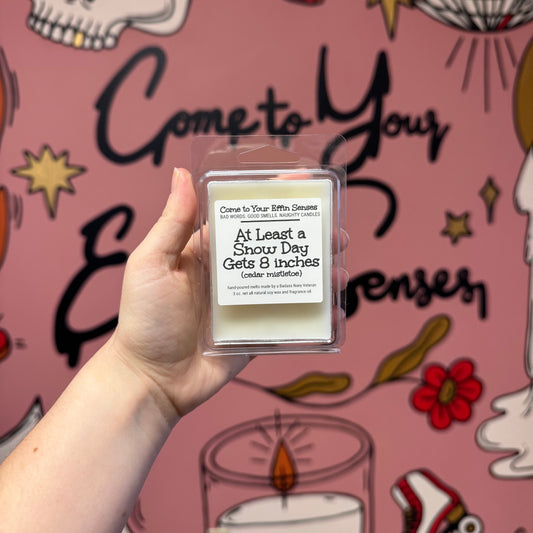 Come to Your
Effin Senses
Come to Your Effin Senses
BAD WORDS. GOOD SMELLS. NAUGHTY CANDLES
At Least a
Snow Day
Gets 8 inches
(cedar mistletoe)
hand-poured melts made by a Badass Navy Veteran
3 oz. net all natural soy wax and fragrance oil.